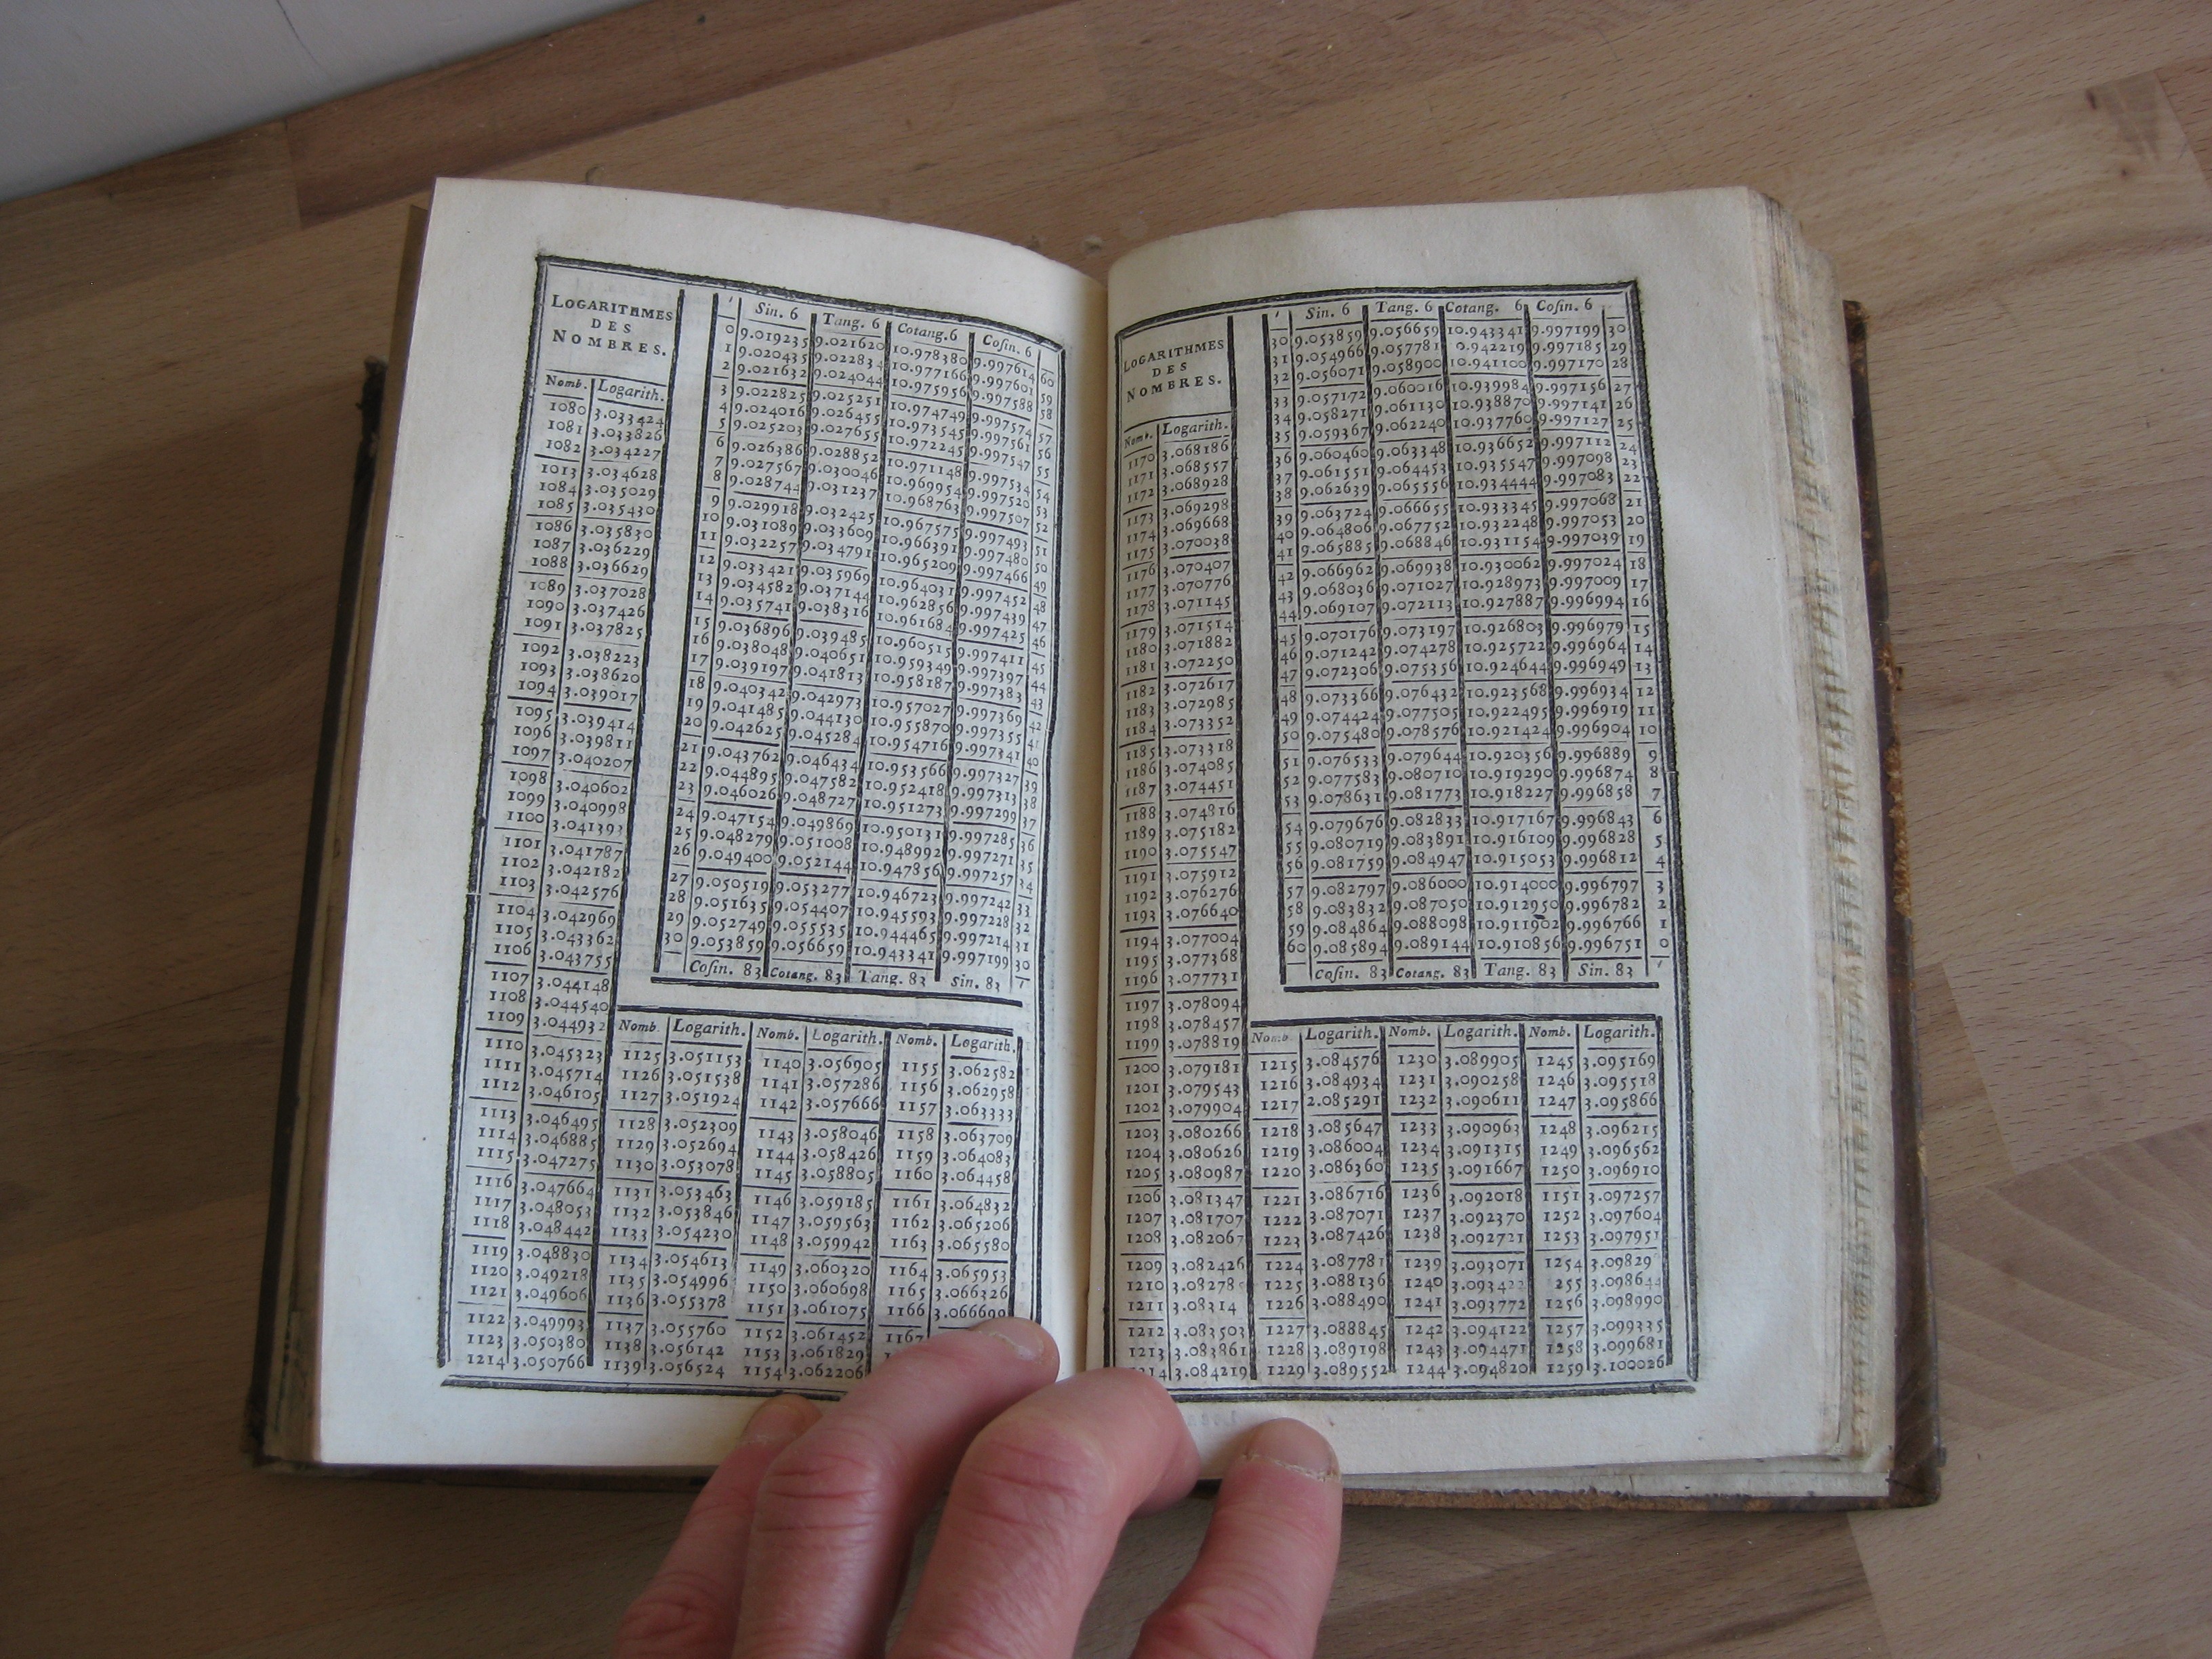 LOGARITHMES
DES
NOMBRES.
Nomb. Logarith.
1080 3.033424
1081 3.033826
1082 3.034227
1013 3.034628
1084 3.035029
1085 3.035430
1086 3.035830
1087 3.036229
1088 3.036629
1089 3.037028
1090 3.037426
1091 3.037825
1092 3.038223
1093 3.038620
1094 3.039017
1095 3.039414
1096 3.039811
1097 3.040207
1098 3.040602
1099 3.040998
1100 3.041393
1101 3.041787
1102 3.042182
1103 3.042576
1104 3.042969
1105 3.043362
1106 3.043755
1107 3.044148
1108 3.044540
1109 3.044932
1110 3.045323
1111 3.045714
1112 3.046105
1113 3.046495
1114 3.046885
1115 3.047275
1116 3.047664
1117 3.048053
1118 3.048442
1119 3.048830
1120 3.049218
1121 3.049606
1122 3.049993
1123 3.050380
1214 3.050766
' Sin. 6 Tang. 6 Cotang. 6 Cosin. 6
0 9.019235 9.021620 10.978380 9.997614 60
1 9.020435 9.022834 10.977166 9.997601 59
2 9.021632 9.024044 10.975956 9.997588 58
3 9.022825 9.025251 10.974749 9.997574 57
4 9.024016 9.026455 10.973545 9.997561 56
5 9.025203 9.027655 10.972245 9.997547 55
6 9.026386 9.028852 10.971148 9.997534 54
7 9.027567 9.030046 10.969954 9.997520 53
8 9.028744 9.031237 10.968763 9.997507 52
9 9.029918 9.032425 10.967575 9.997493 51
10 9.031089 9.033609 10.966391 9.997480 50
11 9.032257 9.034791 10.965209 9.997466 49
12 9.033421 9.035969 10.964031 9.997452 48
13 9.034582 9.037144 10.962856 9.997439 47
14 9.035741 9.038316 10.961684 9.997425 46
15 9.036896 9.039485 10.960515 9.997411 45
16 9.038048 9.040651 10.959349 9.997397 44
17 9.039197 9.041813 10.958187 9.997383 43
18 9.040342 9.042973 10.957027 9.997369 42
19 9.041485 9.044130 10.955870 9.997355 41
20 9.042625 9.045284 10.954716 9.997341 40
21 9.043762 9.046434 10.953566 9.997327 39
22 9.044895 9.047582 10.952418 9.997313 38
23 9.046026 9.048727 10.951273 9.997299 37
24 9.047154 9.049869 10.950131 9.997285 36
25 9.048279 9.051008 10.948992 9.997271 35
26 9.049400 9.052144 10.947856 9.997257 34
27 9.050519 9.053277 10.946723 9.997242 33
28 9.051635 9.054407 10.945593 9.997228 32
29 9.052749 9.055535 10.944465 9.997214 31
30 9.053859 9.056659 10.943341 9.997199 30
Cosin. 83 Cotang. 83 Tang. 83 Sin. 83 '
Nomb. Logarith. Nomb. Logarith. Nomb. Logarith.
1125 3.051153 1140 3.056905 1155 3.062582
1126 3.051538 1141 3.057286 1156 3.062958
1127 3.051924 1142 3.057666 1157 3.063333
1128 3.052309 1143 3.058046 1158 3.063709
1129 3.052694 1144 3.058426 1159 3.064083
1130 3.053078 1145 3.058805 1160 3.064458
1131 3.053463 1146 3.059185 1161 3.064832
1132 3.053846 1147 3.059563 1162 3.065206
1133 3.054230 1148 3.059942 1163 3.065580
1134 3.054613 1149 3.060320 1164 3.065953
1135 3.054996 1150 3.060698 1165 3.066326
1136 3.055378 1151 3.061075 1166 3.066699
1137 3.055760 1152 3.061452 1167
1138 3.056142 1153 3.061829
1139 3.056524 1154 3.062206
LOGARITHMES
DES
NOMBRES.
Nomb. Logarith.
1170 3.068186
1171 3.068557
1172 3.068928
1173 3.069298
1174 3.069668
1175 3.070038
1176 3.070407
1177 3.070776
1178 3.071145
1179 3.071514
1180 3.071882
1181 3.072250
1182 3.072617
1183 3.072985
1184 3.073352
1185 3.073318
1186 3.074085
1187 3.074451
1188 3.074816
1189 3.075182
1190 3.075547
1191 3.075912
1192 3.076276
1193 3.076640
1194 3.077004
1195 3.077368
1196 3.077731
1197 3.078094
1198 3.078457
1199 3.078819
1200 3.079181
1201 3.079543
1202 3.079904
1203 3.080266
1204 3.080626
1205 3.080987
1206 3.081347
1207 3.081707
1208 3.082067
1209 3.082426
1210 3.08278
1211 3.08314
1212 3.083503
1213 3.083861
14 3.084219
' Sin. 6 Tang. 6 Cotang. 6 Cosin. 6
30 9.053859 9.056659 10.943341 9.997199 30
31 9.054966 9.057781 0.942219 9.997185 29
32 9.056071 9.058900 10.941100 9.997170 28
33 9.057172 9.060016 10.939984 9.997156 27
34 9.058271 9.061130 10.938870 9.997141 26
35 9.059367 9.062240 10.937760 9.997127 25
36 9.060460 9.063348 10.936652 9.997112 24
37 9.061551 9.064453 10.935547 9.997098 23
38 9.062639 9.065556 10.934444 9.997083 22
39 9.063724 9.066655 10.933345 9.997068 21
40 9.064806 9.067752 10.932248 9.997053 20
41 9.065885 9.068846 10.931154 9.997039 19
42 9.066962 9.069938 10.930062 9.997024 18
43 9.068036 9.071027 10.928973 9.997009 17
44 9.069107 9.072113 10.927887 9.996994 16
45 9.070176 9.073197 10.926803 9.996979 15
46 9.071242 9.074278 10.925722 9.996964 14
47 9.072306 9.075356 10.924644 9.996949 13
48 9.073366 9.076432 10.923568 9.996934 12
49 9.074424 9.077505 10.922495 9.996919 11
50 9.075480 9.078576 10.921424 9.996904 10
51 9.076533 9.079644 10.920356 9.996889 9
52 9.077583 9.080710 10.919290 9.996874 8
53 9.078631 9.081773 10.918227 9.996858 7
54 9.079676 9.082833 10.917167 9.996843 6
55 9.080719 9.083891 10.916109 9.996828 5
56 9.081759 9.084947 10.915053 9.996812 4
57 9.082797 9.086000 10.914000 9.996797 3
58 9.083832 9.087050 10.912950 9.996782 2
59 9.084864 9.088098 10.911902 9.996766 1
60 9.085894 9.089144 10.910856 9.996751 0
Cosin. 83 Cotang. 83 Tang. 83 Sin. 83 '
Nomb. Logarith. Nomb. Logarith. Nomb. Logarith.
1215 3.084576 1230 3.089905 1245 3.095169
1216 3.084934 1231 3.090258 1246 3.095518
1217 2.085291 1232 3.090611 1247 3.095866
1218 3.085647 1233 3.090963 1248 3.096215
1219 3.086004 1234 3.091315 1249 3.096562
1220 3.086360 1235 3.091667 1250 3.096910
1221 3.086716 1236 3.092018 1151 3.097257
1222 3.087071 1237 3.092370 1252 3.097604
1223 3.087426 1238 3.092721 1253 3.097951
1224 3.087781 1239 3.093071 1254 3.09829
1225 3.088136 1240 3.093422 255 3.098644
1226 3.088490 1241 3.093772 1256 3.098990
1227 3.088845 1242 3.094122 1257 3.099335
1228 3.089198 1243 3.094471 1258 3.099681
1229 3.089552 1244 3.094820 1259 3.100026